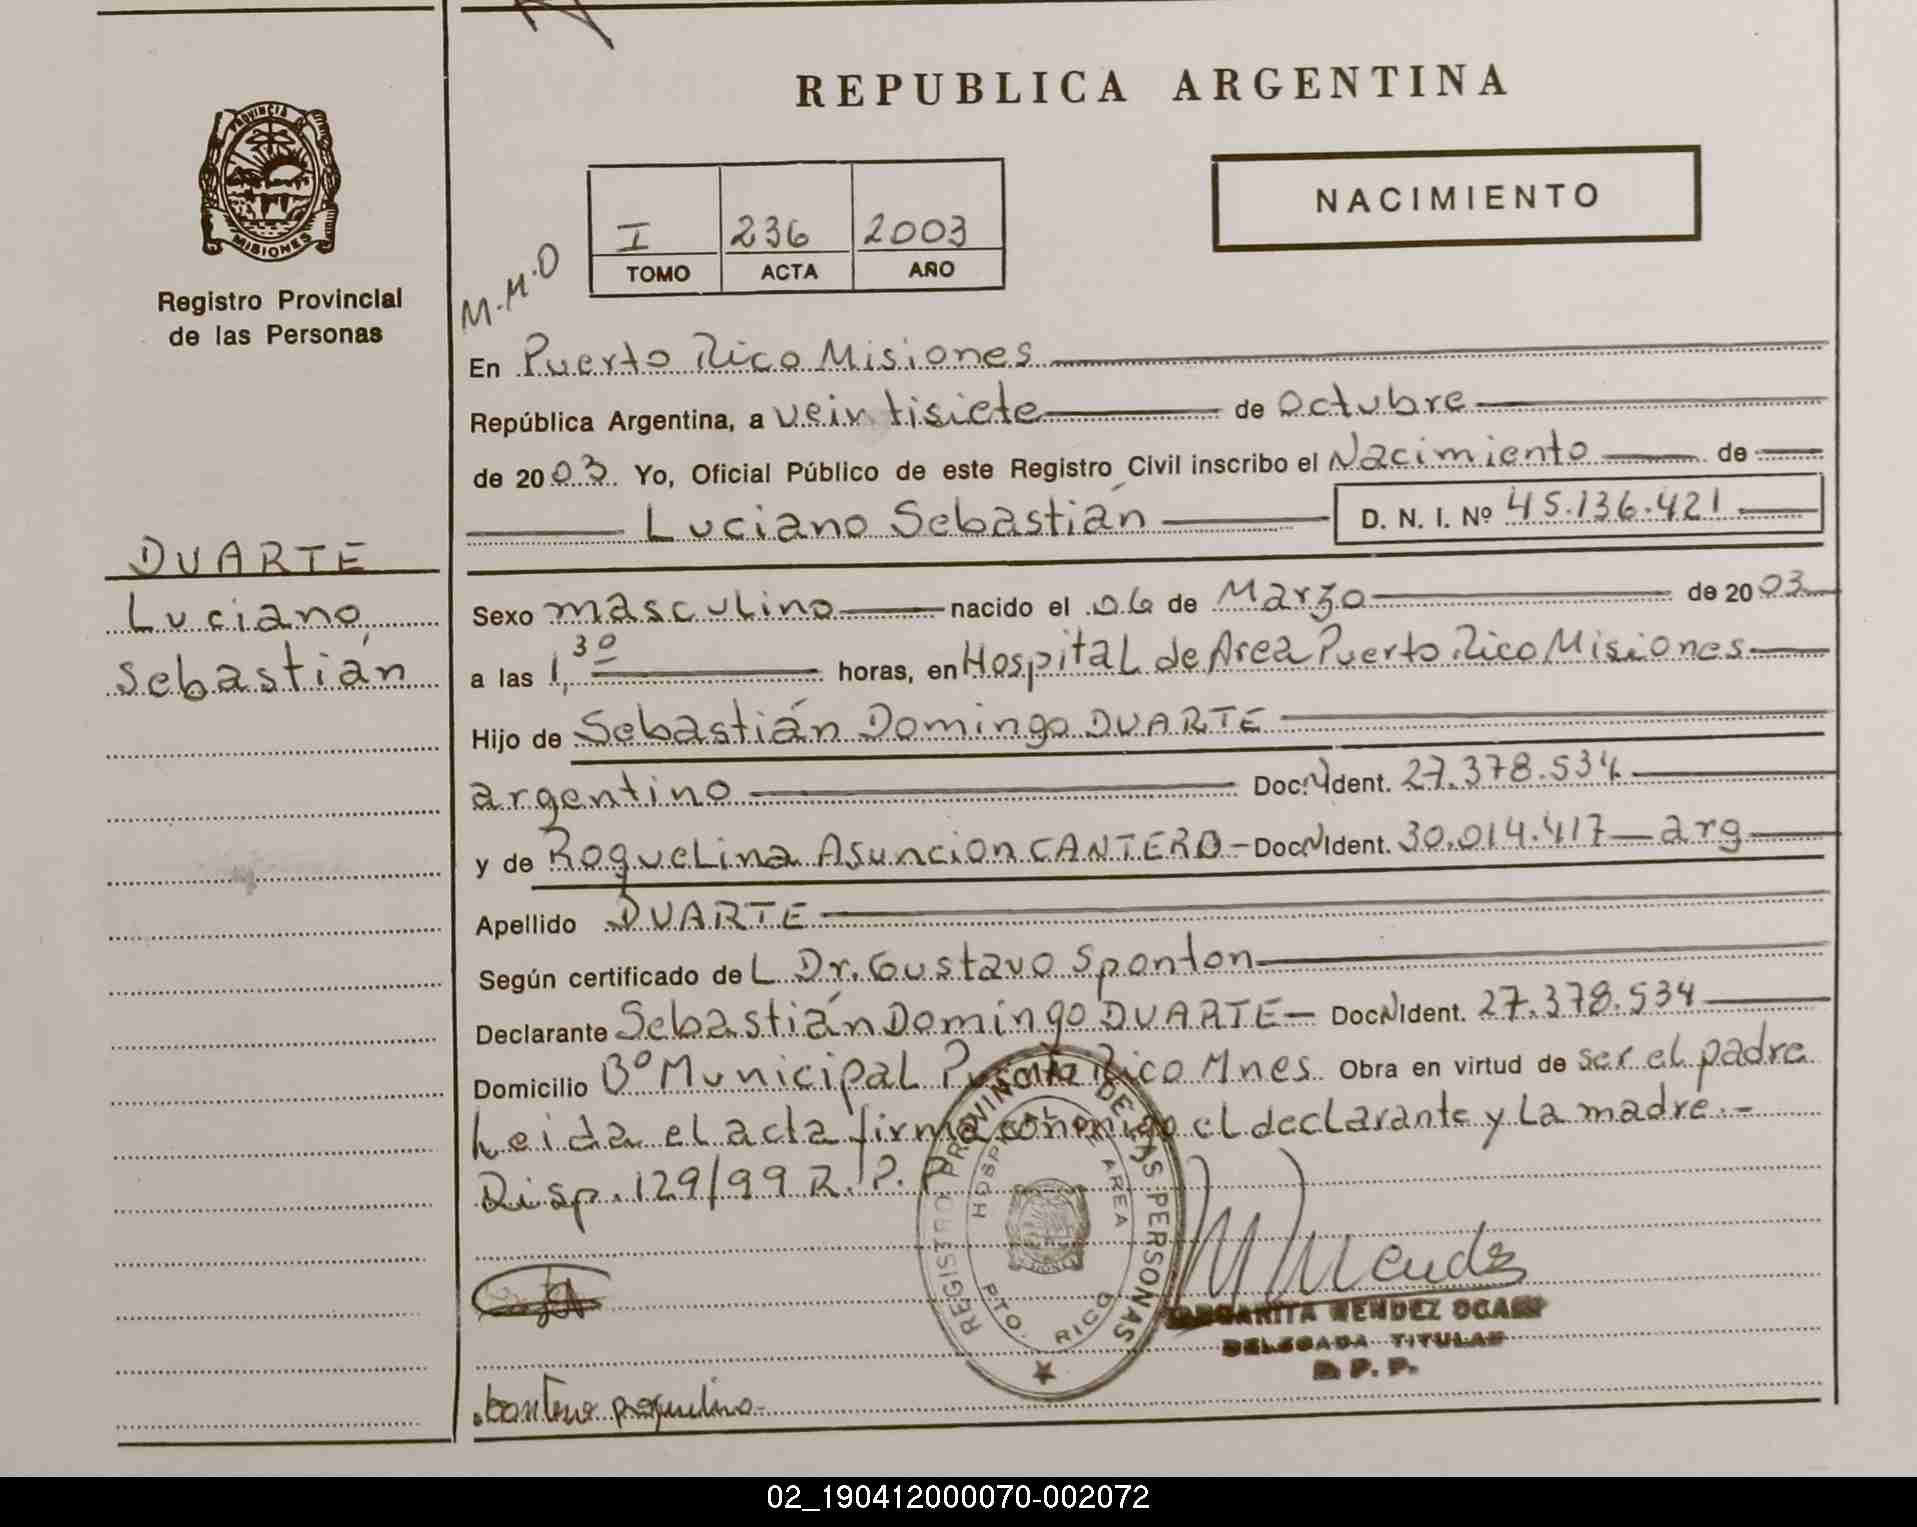 REPUBLICA ARGENTINA
PROVINCIA
MISIONES
Registro Provincial
de las Personas
NACIMIENTO
I 236 2003
TOMO ACTA AÑO
M.M.O
En Puerto Rico Misiones
República Argentina, a veintisiete de Octubre
de 2003. Yo, Oficial Público de este Registro Civil inscribo el Nacimiento de
Luciano Sebastián D. N. I. Nº 45.136.421
DUARTE
Luciano
Sebastián
Sexo masculino nacido el 06 de Marzo de 2003
a las 1,30 horas, en Hospital de Area Puerto Rico Misiones
Hijo de Sebastián Domingo DUARTE
argentino Doc. N Ident. 27.378.534
y de Roquelina Asuncion CANTERO - Doc N Ident. 30.014.417 - arg
Apellido DUARTE
Según certificado del Dr. Gustavo Sponton
Declarante Sebastián Domingo DUARTE - Doc N Ident. 27.378.534
Domicilio Bº Municipal Puerto Rico Mnes. Obra en virtud de ser el padre
Leida el acta firma conmigo el declarante y La madre.-
Disp. 129/99 R.P.P
REGISTRO PROVINCIAL DE LAS PERSONAS
HOSPITAL AREA
PTO. RICO
M Mendez
MARGARITA MENDEZ OCAMPO
DELEGADA TITULAR
R. P. P.
02_190412000070-002072